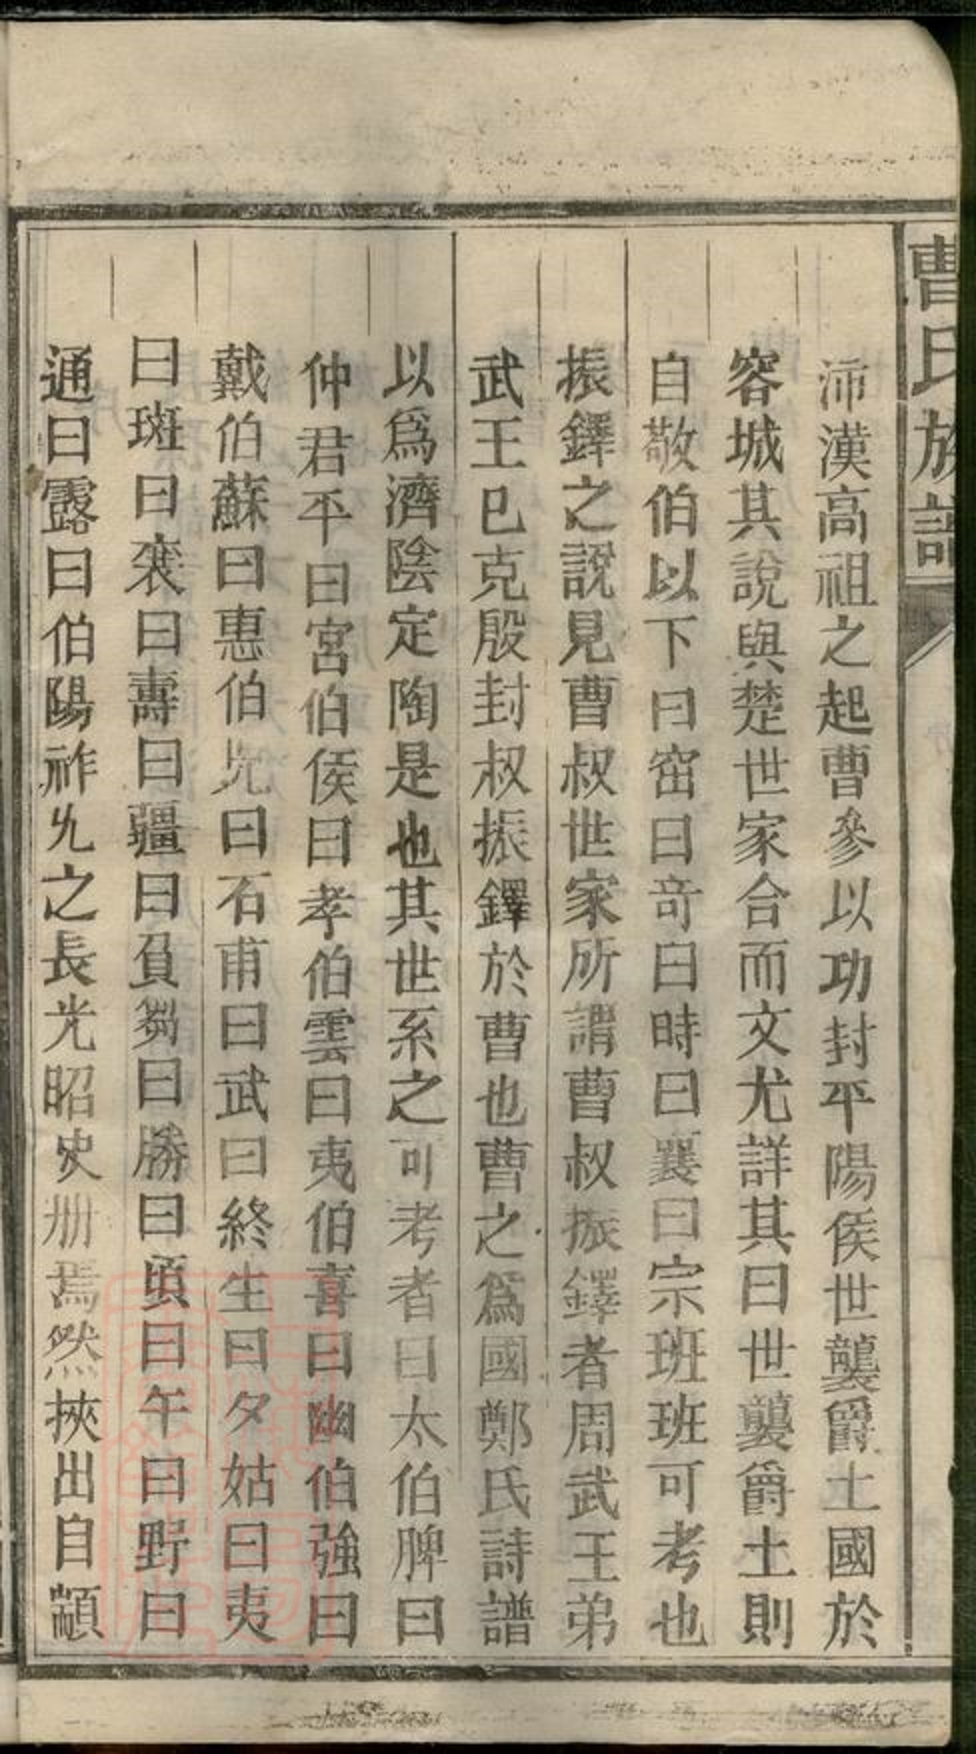 曹氏族譜
沛漢高祖之起曹參以功封平陽侯世襲爵土國於
容城其說與楚世家合而文尤詳其曰世襲爵土則
自敬伯以下曰窋曰竒曰時曰襄曰宗班班可考也
振鐸之說見曹叔世家所謂曹叔振鐸者周武王弟
武王巳克殷封叔振鐸於曹也曹之爲國鄭氏詩譜
以爲濟陰定陶是也其世系之可考者曰太伯脾曰
仲君平曰宮伯侯曰孝伯雲曰夷伯喜曰幽伯強曰
戴伯蘇曰惠伯兕曰石甫曰武曰終生曰夕姑曰夷
曰班曰襄曰壽曰疆曰負芻曰勝曰須曰午曰野曰
通曰露曰伯陽祚乆之長光昭史册焉然挾出自顓